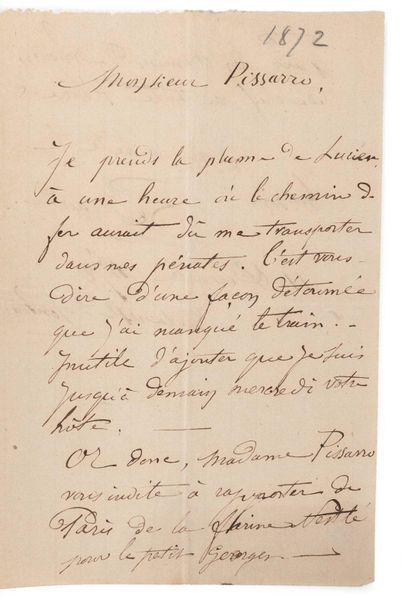 1872
Monsieur Pissarro,
Je prends la plume de Lucien
à une heure où le chemin de
fer aurait dû me transporter
dans mes pénates. C'est vous
dire d'une façon détournée
que j'ai manqué le train. -
Inutile d'ajouter que je suis
jusqu'à demain mercredi votre
hôte. —
Or donc, Madame Pissarro
vous invite à rapporter de
Paris de la farine Nestlé
pour le petit Georges —